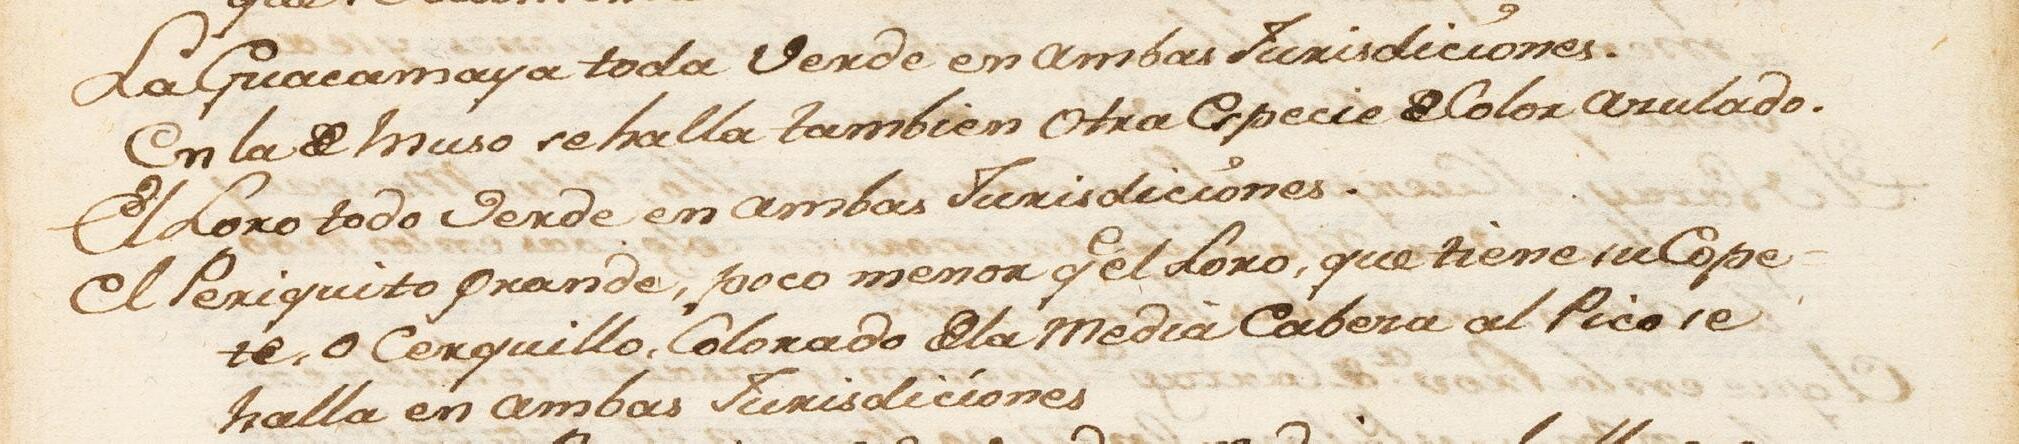 La Guacamaya toda Verde en ambas Jurisdiciones.
En la de Muso se halla tambien Otra Especie de Color azulado.
El Loro todo Verde en ambas Jurisdiciones.
El Periquito grande, poco menor qe el Loro, que tiene su Cope-
te, o Cerquillo, Colorado de la Media Cabeza al Pico se
halla en ambas Jurisdiciones